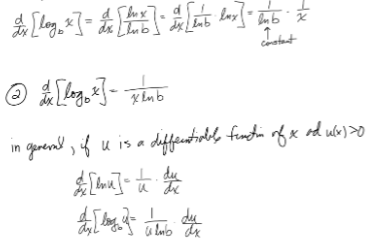 d/dx [log_b x] = d/dx [ln x / ln b] = d/dx [1/ln b · ln x] = 1/ln b · 1/x
↑
constant
② d/dx [log_b x] = 1/(x ln b)
in general, if u is a differentiable function of x and u(x) > 0
d/dx [ln u] = 1/u · du/dx
d/dx [log_b u] = 1/(u ln b) · du/dx